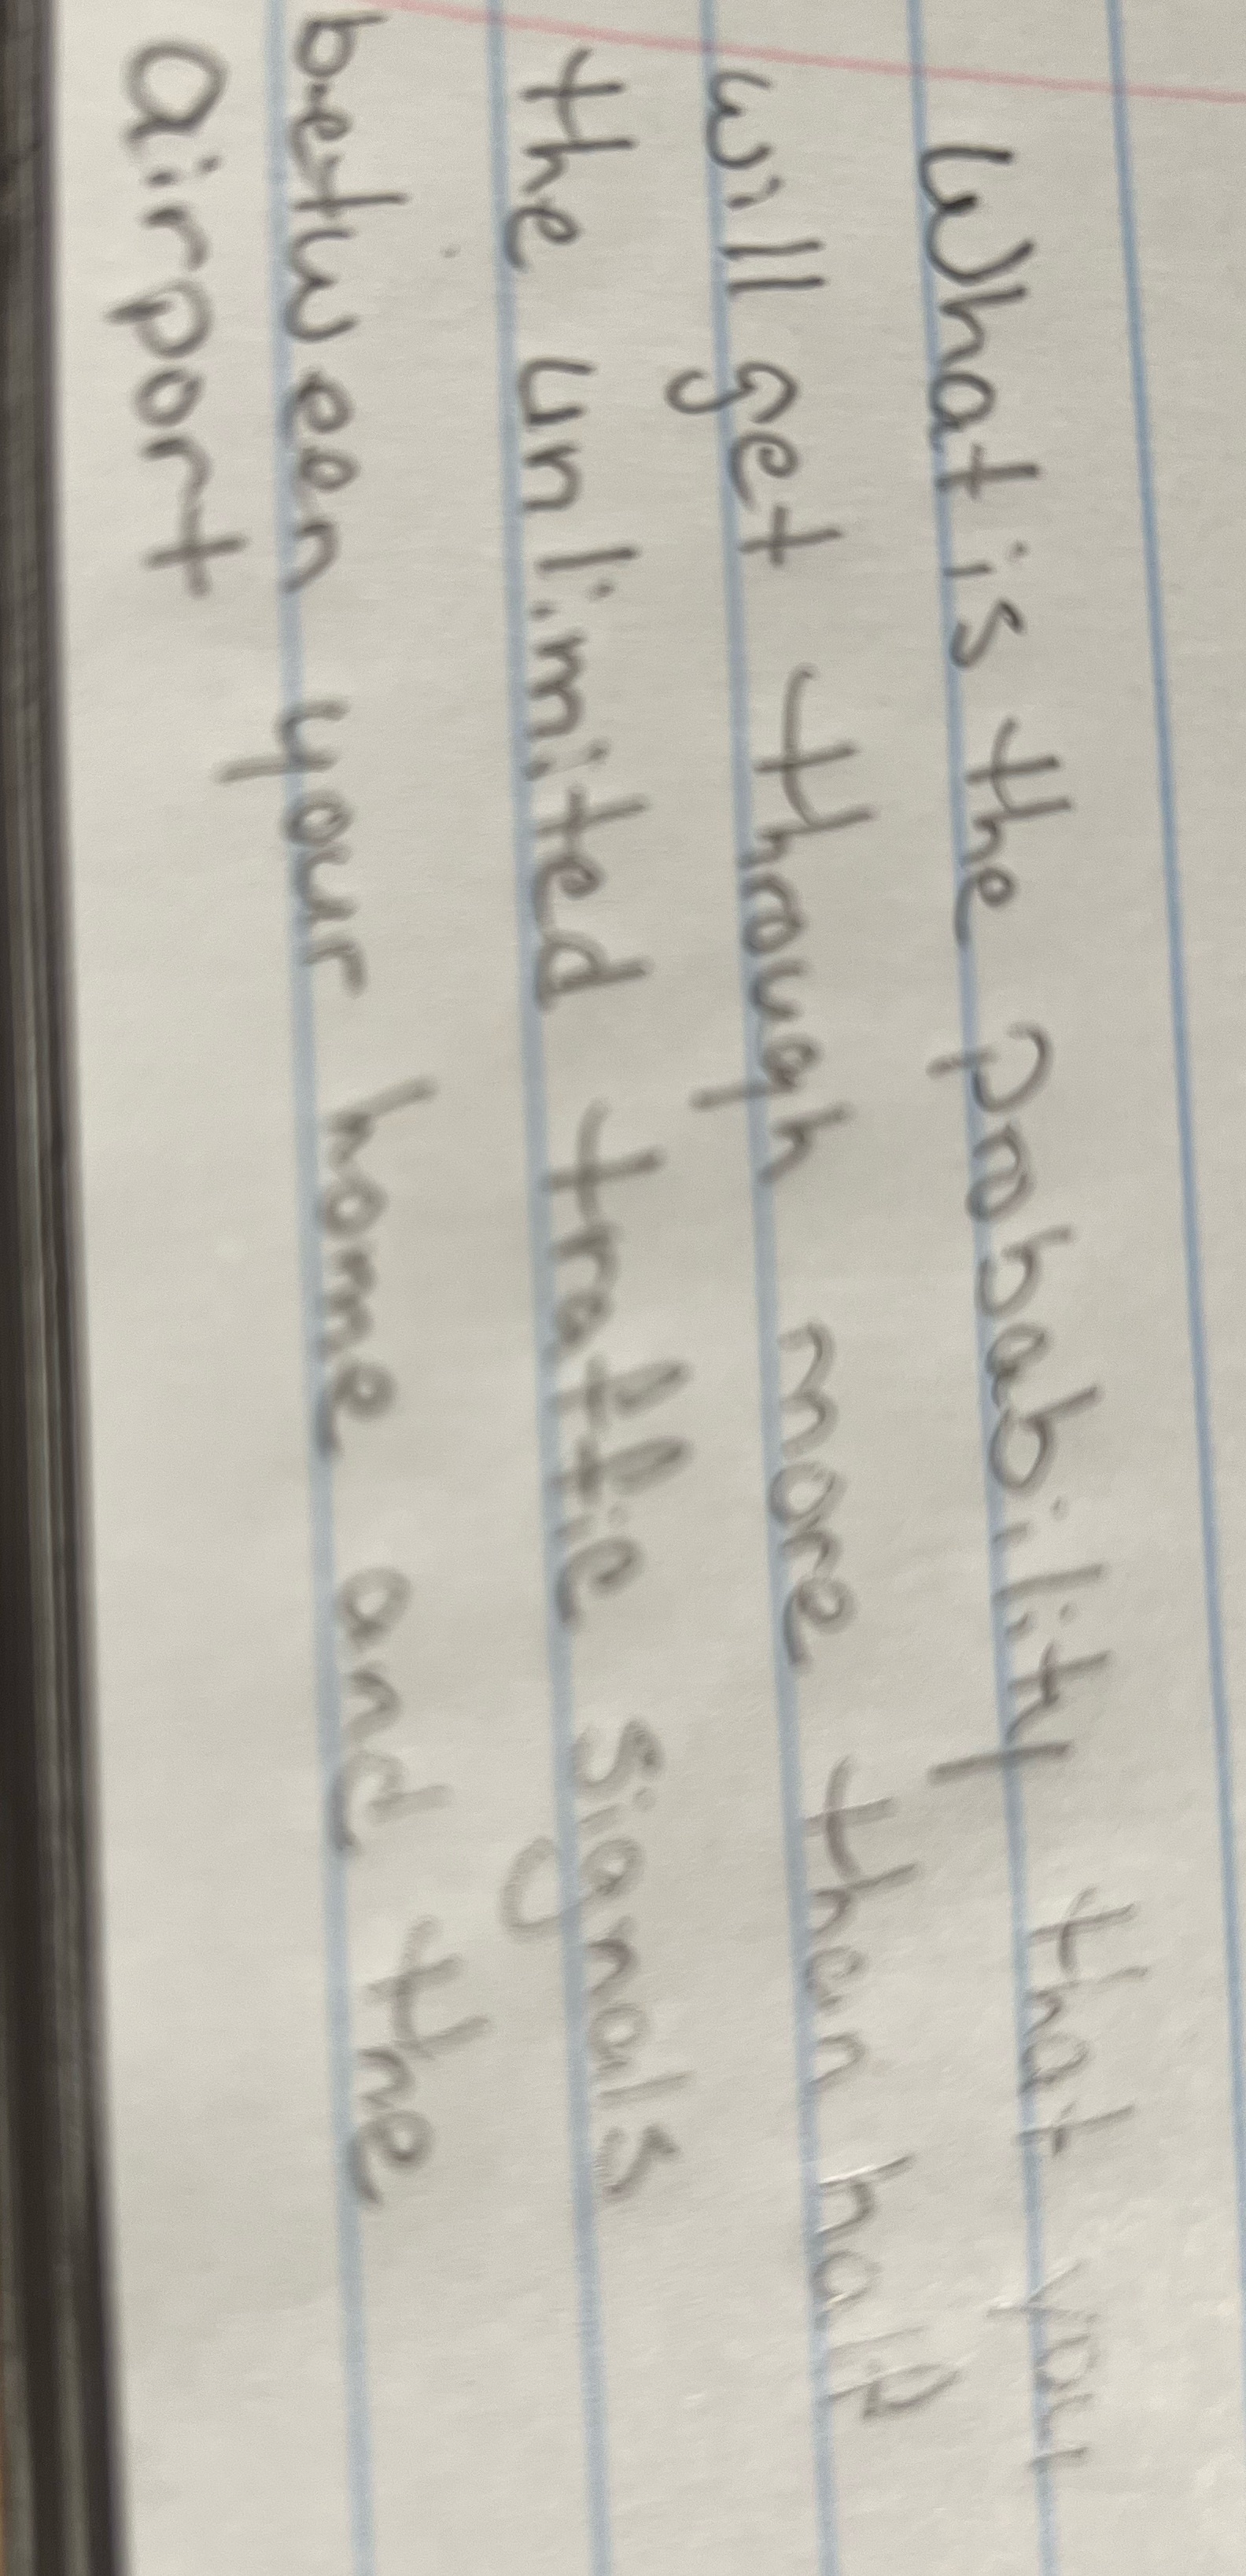 What is the probability that you
will get through more than half
the unlimited traffic signals
between your home and the
airport